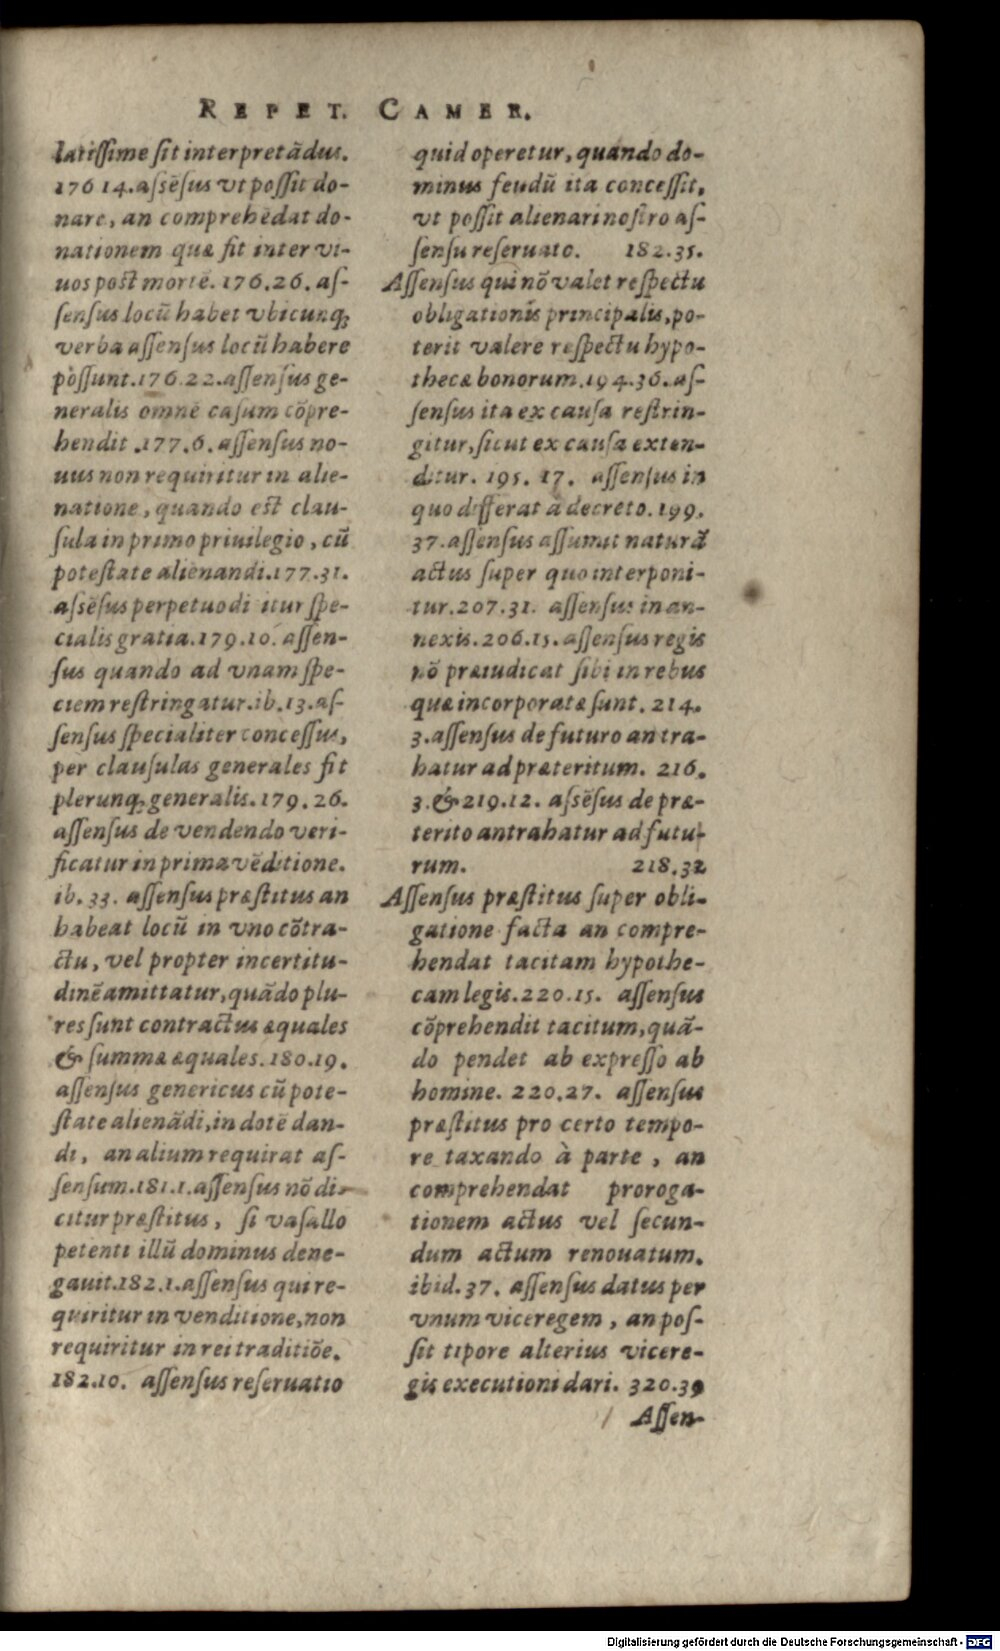 REPET. CAMER.
latiſſime ſit interpretãdus.
176 14. aſsẽſus vt poſſit do-
nare, an comprehẽdat do-
nationem quæ fit inter vi-
uos post mortẽ. 176.26. aſ-
ſenſus locũ habet vbicunq;
verba aſſenſus locũ habere
poſſunt. 176.22. aſſenſus ge-
neralis omnẽ caſum cõpre-
hendit .177.6. aſſenſus no-
uus non requiritur in alie-
natione, quando est clau-
ſula in primo priuilegio, cũ
poteſtate alienandi. 177.31.
aſsẽſus perpetuo di itur ſpe-
cialis gratia. 179.10. aſſen-
ſus quando ad vnam ſpe-
ciem reſtringatur. ib. 13. aſ-
ſenſus ſpecialiter conceſſus,
per clauſulas generales fit
plerunq; generalis. 179.26.
aſſenſus de vendendo veri-
ficatur in prima vẽditione.
ib. 33. aſſenſus præſtitus an
habeat locũ in vno cõtra-
ctu, vel propter incertitu-
dinẽ amittatur, quãdo plu-
res ſunt contractus æquales
& ſummæ æquales. 180.19.
aſſenſus genericus cũ pote-
ſtate alienãdi, in dotẽ dan-
di, an alium requirat aſ-
ſenſum. 181.1. aſſenſus nõ di-
citur præſtitus, ſi vaſallo
petenti illũ dominus dene-
gauit. 182.1. aſſenſus qui re-
quiritur in venditione, non
requiritur in rei traditiõe.
182.10. aſſenſus reſeruatio
quid operetur, quando do-
minus feudũ ita conceſſit,
vt poſſit alienari noſtro aſ-
ſenſu reſeruato. 182.35.
Aſſenſus qui nõ valet reſpectu
obligationis principalis, po-
terit valere reſpectu hypo-
thecæ bonorum. 194.36. aſ-
ſenſus ita ex cauſa reſtrin-
gitur, ſicut ex cauſa exten-
ditur. 195. 17. aſſenſus in
quo differat à decreto. 199.
37. aſſenſus aſſumit naturã
actus ſuper quo interponi-
tur. 207.31. aſſenſus in an-
nexis. 206.15. aſſenſus regis
nõ præiudicat ſibi in rebus
quæ incorporatæ ſunt. 214.
3. aſſenſus de futuro an tra-
hatur ad præteritum. 216.
3. & 219.12. aſsẽſus de præ-
terito an trahatur ad futu-
rum. 218.32
Aſſenſus præſtitus ſuper obli-
gatione facta an compre-
hendat tacitam hypothe-
cam legis. 220.15. aſſenſus
cõprehendit tacitum, quã-
do pendet ab expreſſo ab
homine. 220.27. aſſenſus
præſtitus pro certo tempo-
re taxando à parte, an
comprehendat proroga-
tionem actus vel ſecun-
dum actum renouatum.
ibid. 37. aſſenſus datus per
vnum viceregem, an poſ-
ſit tẽpore alterius vicere-
gis executioni dari. 320.39
Aſſen-
Digitalisierung gefördert durch die Deutsche Forschungsgemeinschaft - DFG